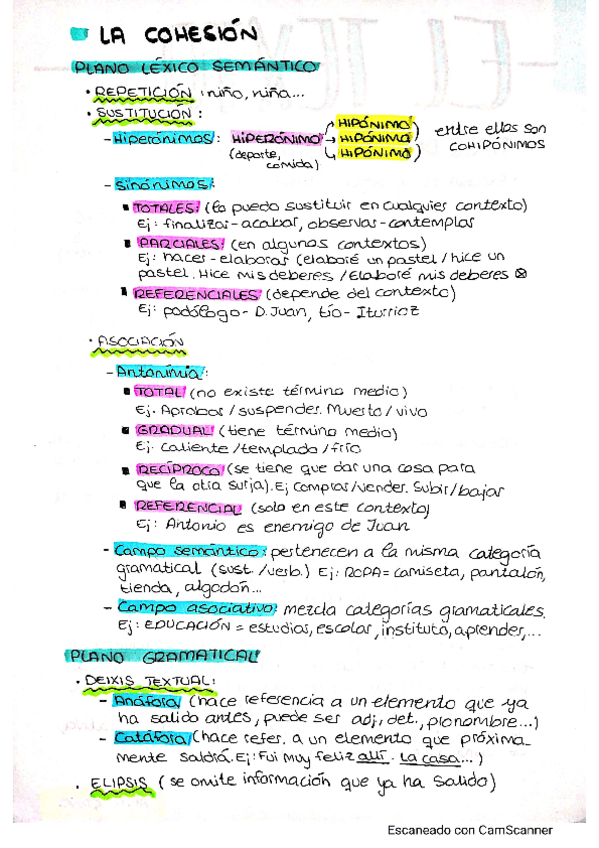 LA COHESIÓN
PLANO LÉXICO SEMÁNTICO
• REPETICIÓN: niño, niña...
• SUSTITUCIÓN:
- Hiperónimos: HIPERÓNIMO → HIPÓNIMO
→ HIPÓNIMO
→ HIPÓNIMO
(deporte, comida)
entre ellos son
COHIPÓNIMOS
- Sinónimos:
▪ TOTALES: (lo puedo sustituir en cualquier contexto)
Ej: finalizar-acabar, observar-contemplar
▪ PARCIALES: (en algunos contextos)
Ej: hacer-elaborar (elaboré un pastel / hice un
pastel. Hice mis deberes / Elaboré mis deberes ⊗
▪ REFERENCIALES (depende del contexto)
Ej: podólogo - D. Juan, tío - Iturrioz
• ASOCIACIÓN
- Antonimia:
▪ TOTAL (no existe término medio)
Ej. Aprobar / suspender. Muerto / vivo
▪ GRADUAL (tiene término medio)
Ej: caliente / templado / frío
▪ RECÍPROCA (se tiene que dar una cosa para
que la otra surja). Ej comprar/vender. Subir/bajar
▪ REFERENCIAL (solo en este contexto)
Ej: Antonio es enemigo de Juan
- Campo semántico: pertenecen a la misma categoría
gramatical (sust. /verb.) Ej: ROPA = camiseta, pantalón,
tienda, algodón...
- Campo asociativo: mezcla categorías gramaticales.
Ej: EDUCACIÓN = estudiar, escolar, instituto, aprender,...
PLANO GRAMATICAL
• DEIXIS TEXTUAL:
- Anáfora (hace referencia a un elemento que ya
ha salido antes, puede ser adj, det., pronombre...)
- Catáfora (hace refer. a un elemento que próxima-
mente saldrá. Ej: Fui muy feliz allí. La casa...)
• ELIPSIS (se omite información que ya ha salido)
Escaneado con CamScanner